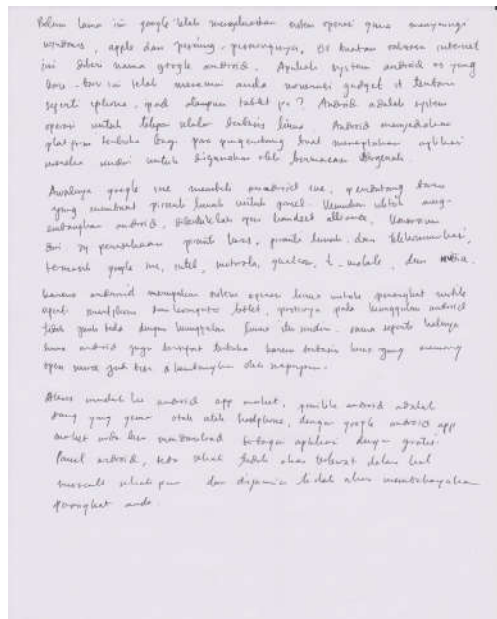 Belum lama ini google telah mengeluarkan sistem operasi guna menyaingi
windows, apple dan pesaing-pesaingnya. OS buatan raksasa internet
ini diberi nama google android. Apakah system android os yang
baru-baru ini telah menemani anda menemani gadget st tentara
seperti iphone, ipad ataupun tablet pc? Android adalah system
operasi untuk telepon seluler berbasis linux. Android menyediakan
platform terbuka bagi para pengembang buat menciptakan aplikasi
mereka sendiri untuk digunakan oleh bermacam
Awalnya google inc membeli android inc, pendatang baru
yang membuat piranti lunak untuk ponsel. Kemudian untuk
android, dibentuklah open handset alliance, konsorsium
dari 34 perusahaan piranti keras, piranti lunak, dan telekomunikasi,
termasuk google inc, intel, motorola, qualcom, t-mobile, dan nvidia.
karena android merupakan sistem operasi linux untuk perangkat mobile
seperti smartphone dan komputer tablet, pada keunggulan android
tidak jauh beda dengan keunggulan linux itu sendiri. sama seperti halnya
linux android juga bersifat terbuka karena berbasis linux yang memang
open source jadi bisa di kembangkan oleh siapapun.
Akses mudah ke android app market, pemilik android adalah
orang yang gemar otak atik handphone, dengan google android app
market anda bisa mendownload berbagai aplikasi dengan gratis.
Ponsel android, tidak akan dalam hal
dan dijamin tidak akan membahayakan
perangkat anda.